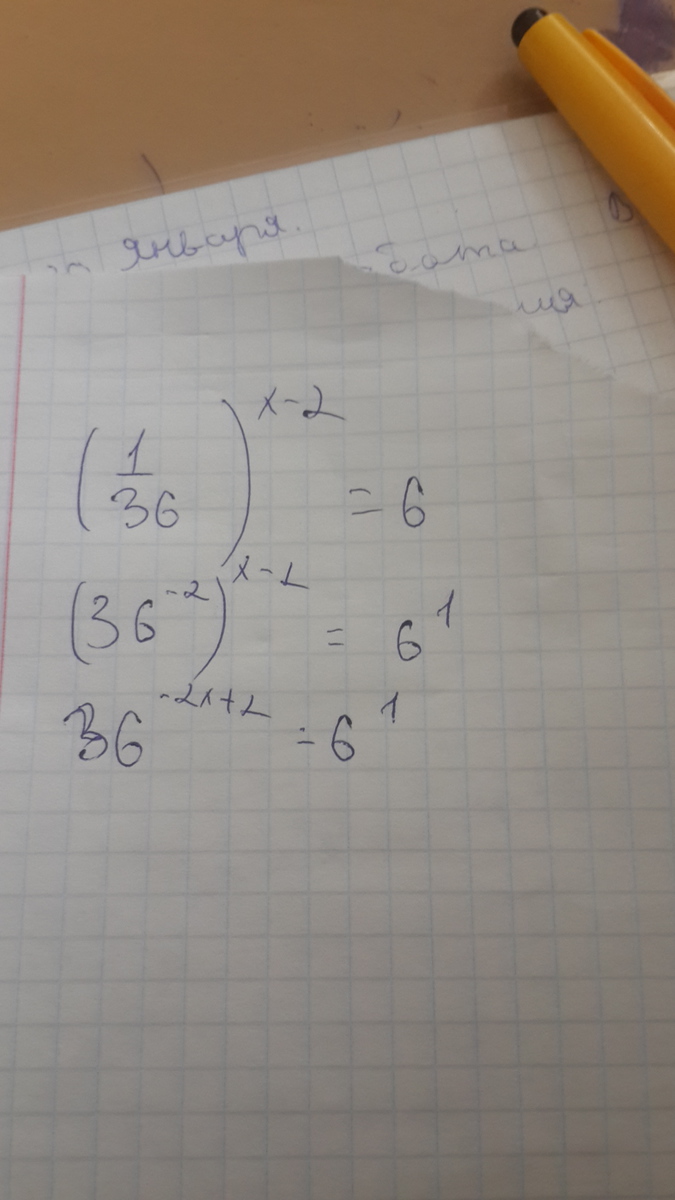 января.
бота
ия
(1/36)^(x-2) = 6
(36^(-2))^(x-1) = 6^1
36^(-2x+2) = 6^1